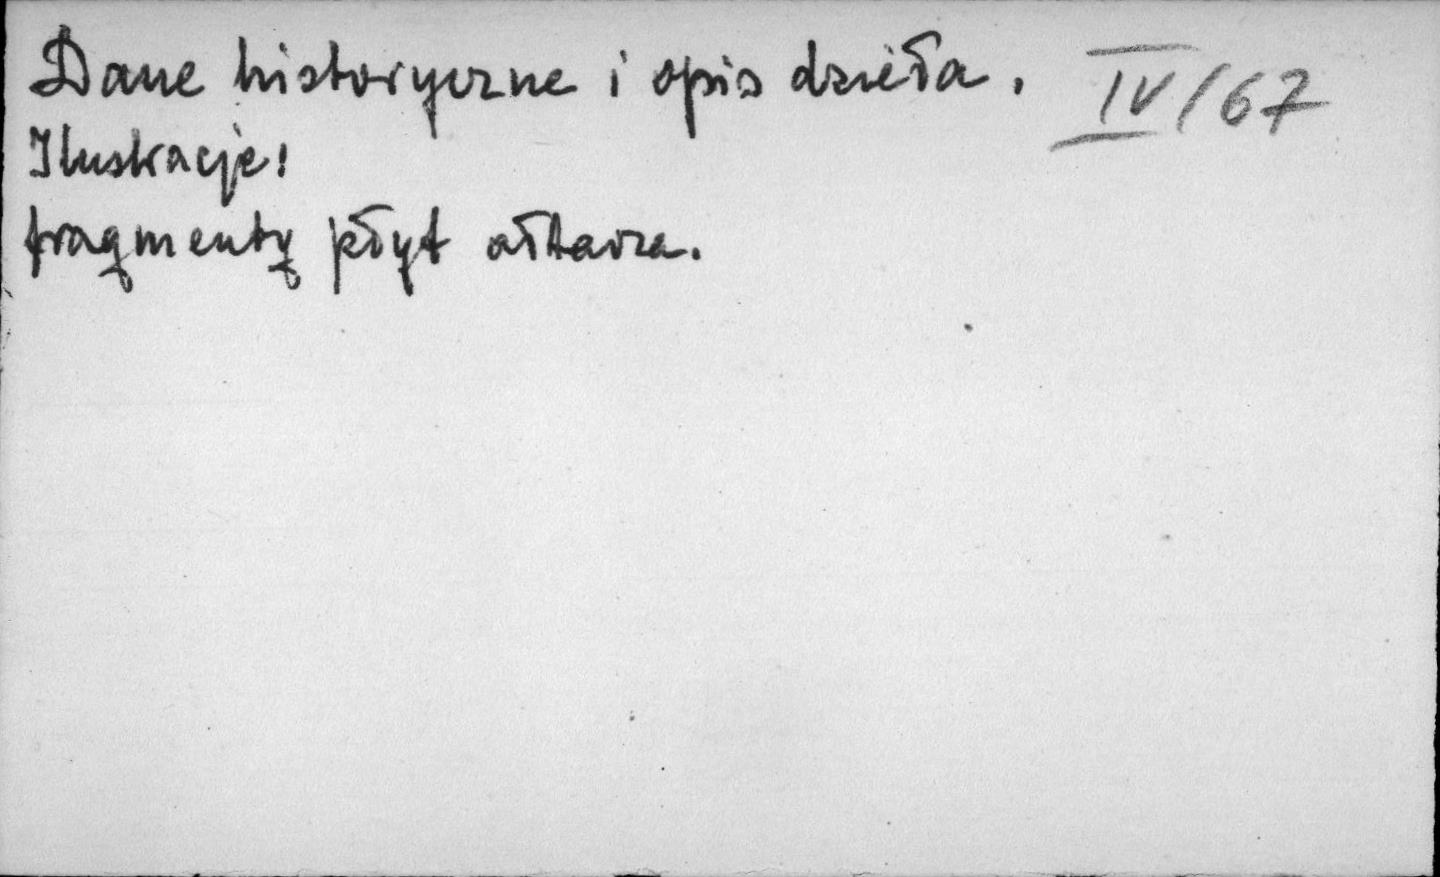 Dane historyczne i opis dzieła. IV/67
Ilustracje:
fragmenty płyt ołtarza.